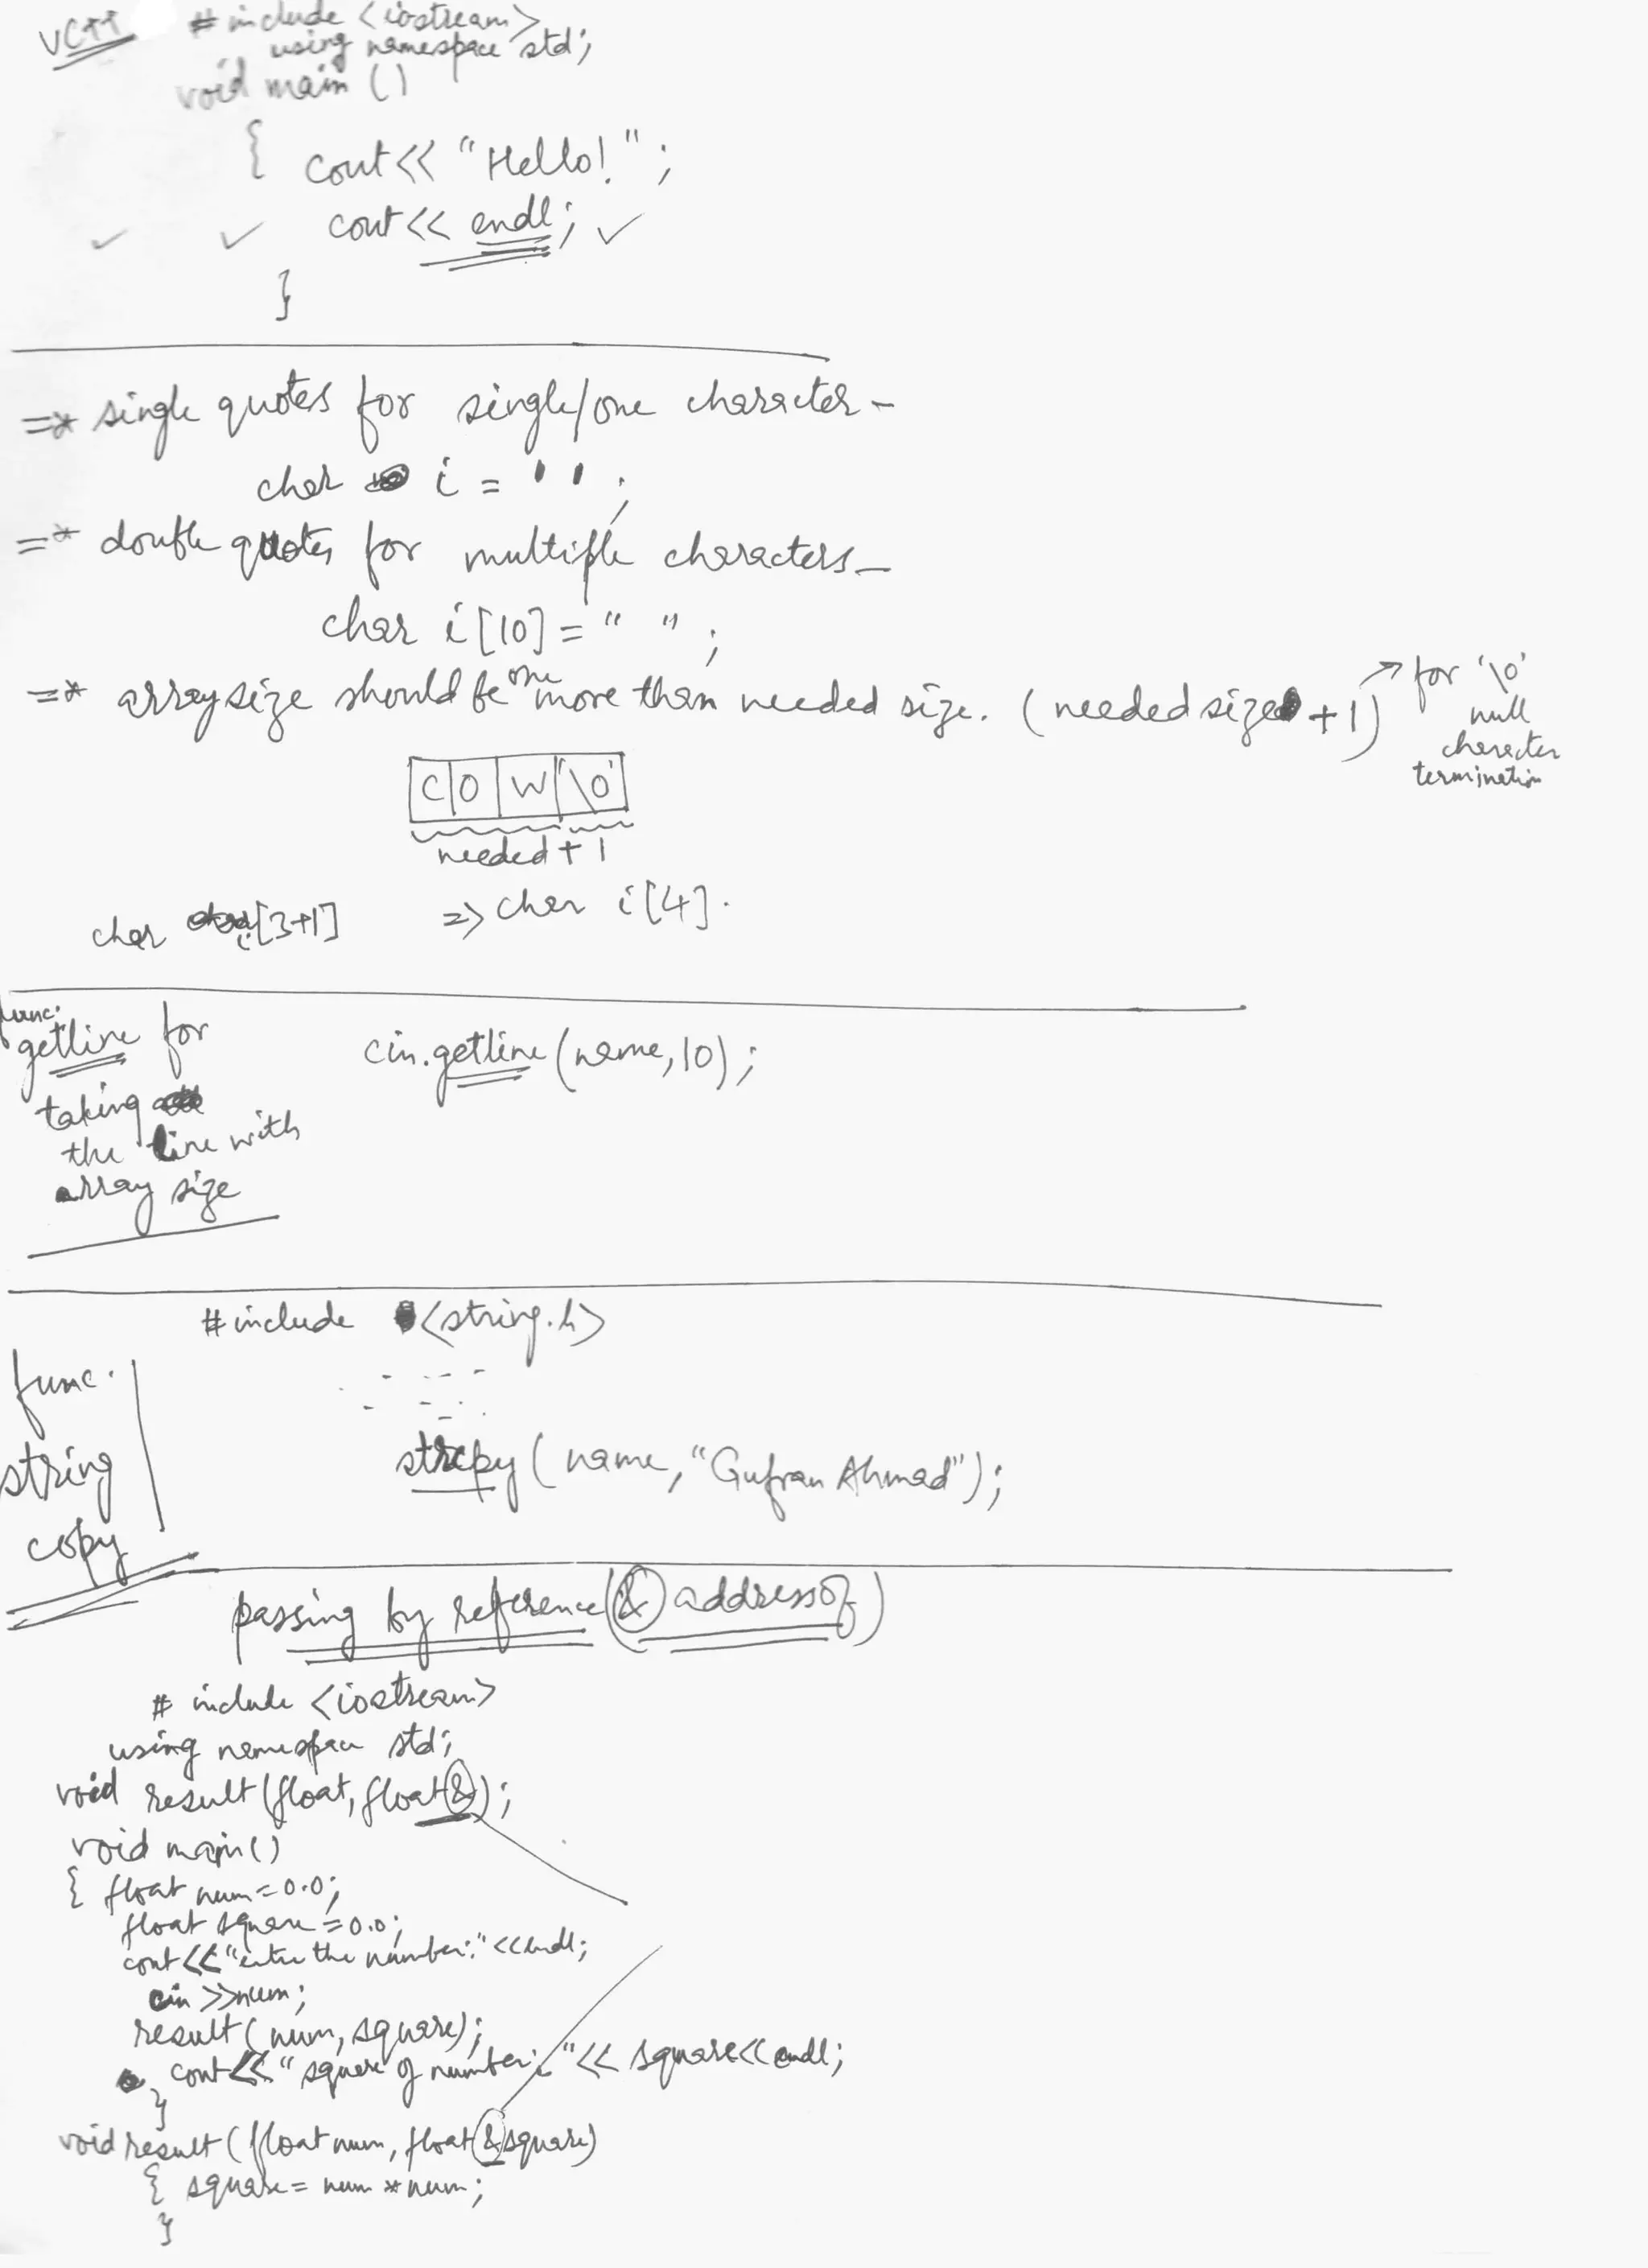 VC++ # include <iostream>
using namespace std;
void main ()
{ cout<< "Hello!" ;
cout<< endl;
}
=* single quotes for single/one character -
char i = ' ' ;
=* double quotes for multiple characters -
char i[10] = " " ;
=* array size should be one more than needed size. (needed size + 1) → for '\0'
null
character
termination
C O W '\0'
needed + 1
char i[3+1] => char i[4].
func.
getline for cin.getline(name,10);
taking
the line with
array size
#include <string.h>
func.
string strcpy( name, "Gufran Ahmad");
copy
passing by reference (& address of)
# include <iostream>
using namespace std;
void result(float, float&);
void main()
{ float num=0.0;
float square=0.0;
cout<<"enter the number:"<<endl;
cin >>num;
result( num, square);
cout<< "square of number: "<< square<<endl;
}
void result( float num, float &square)
{ square= num *num;
}